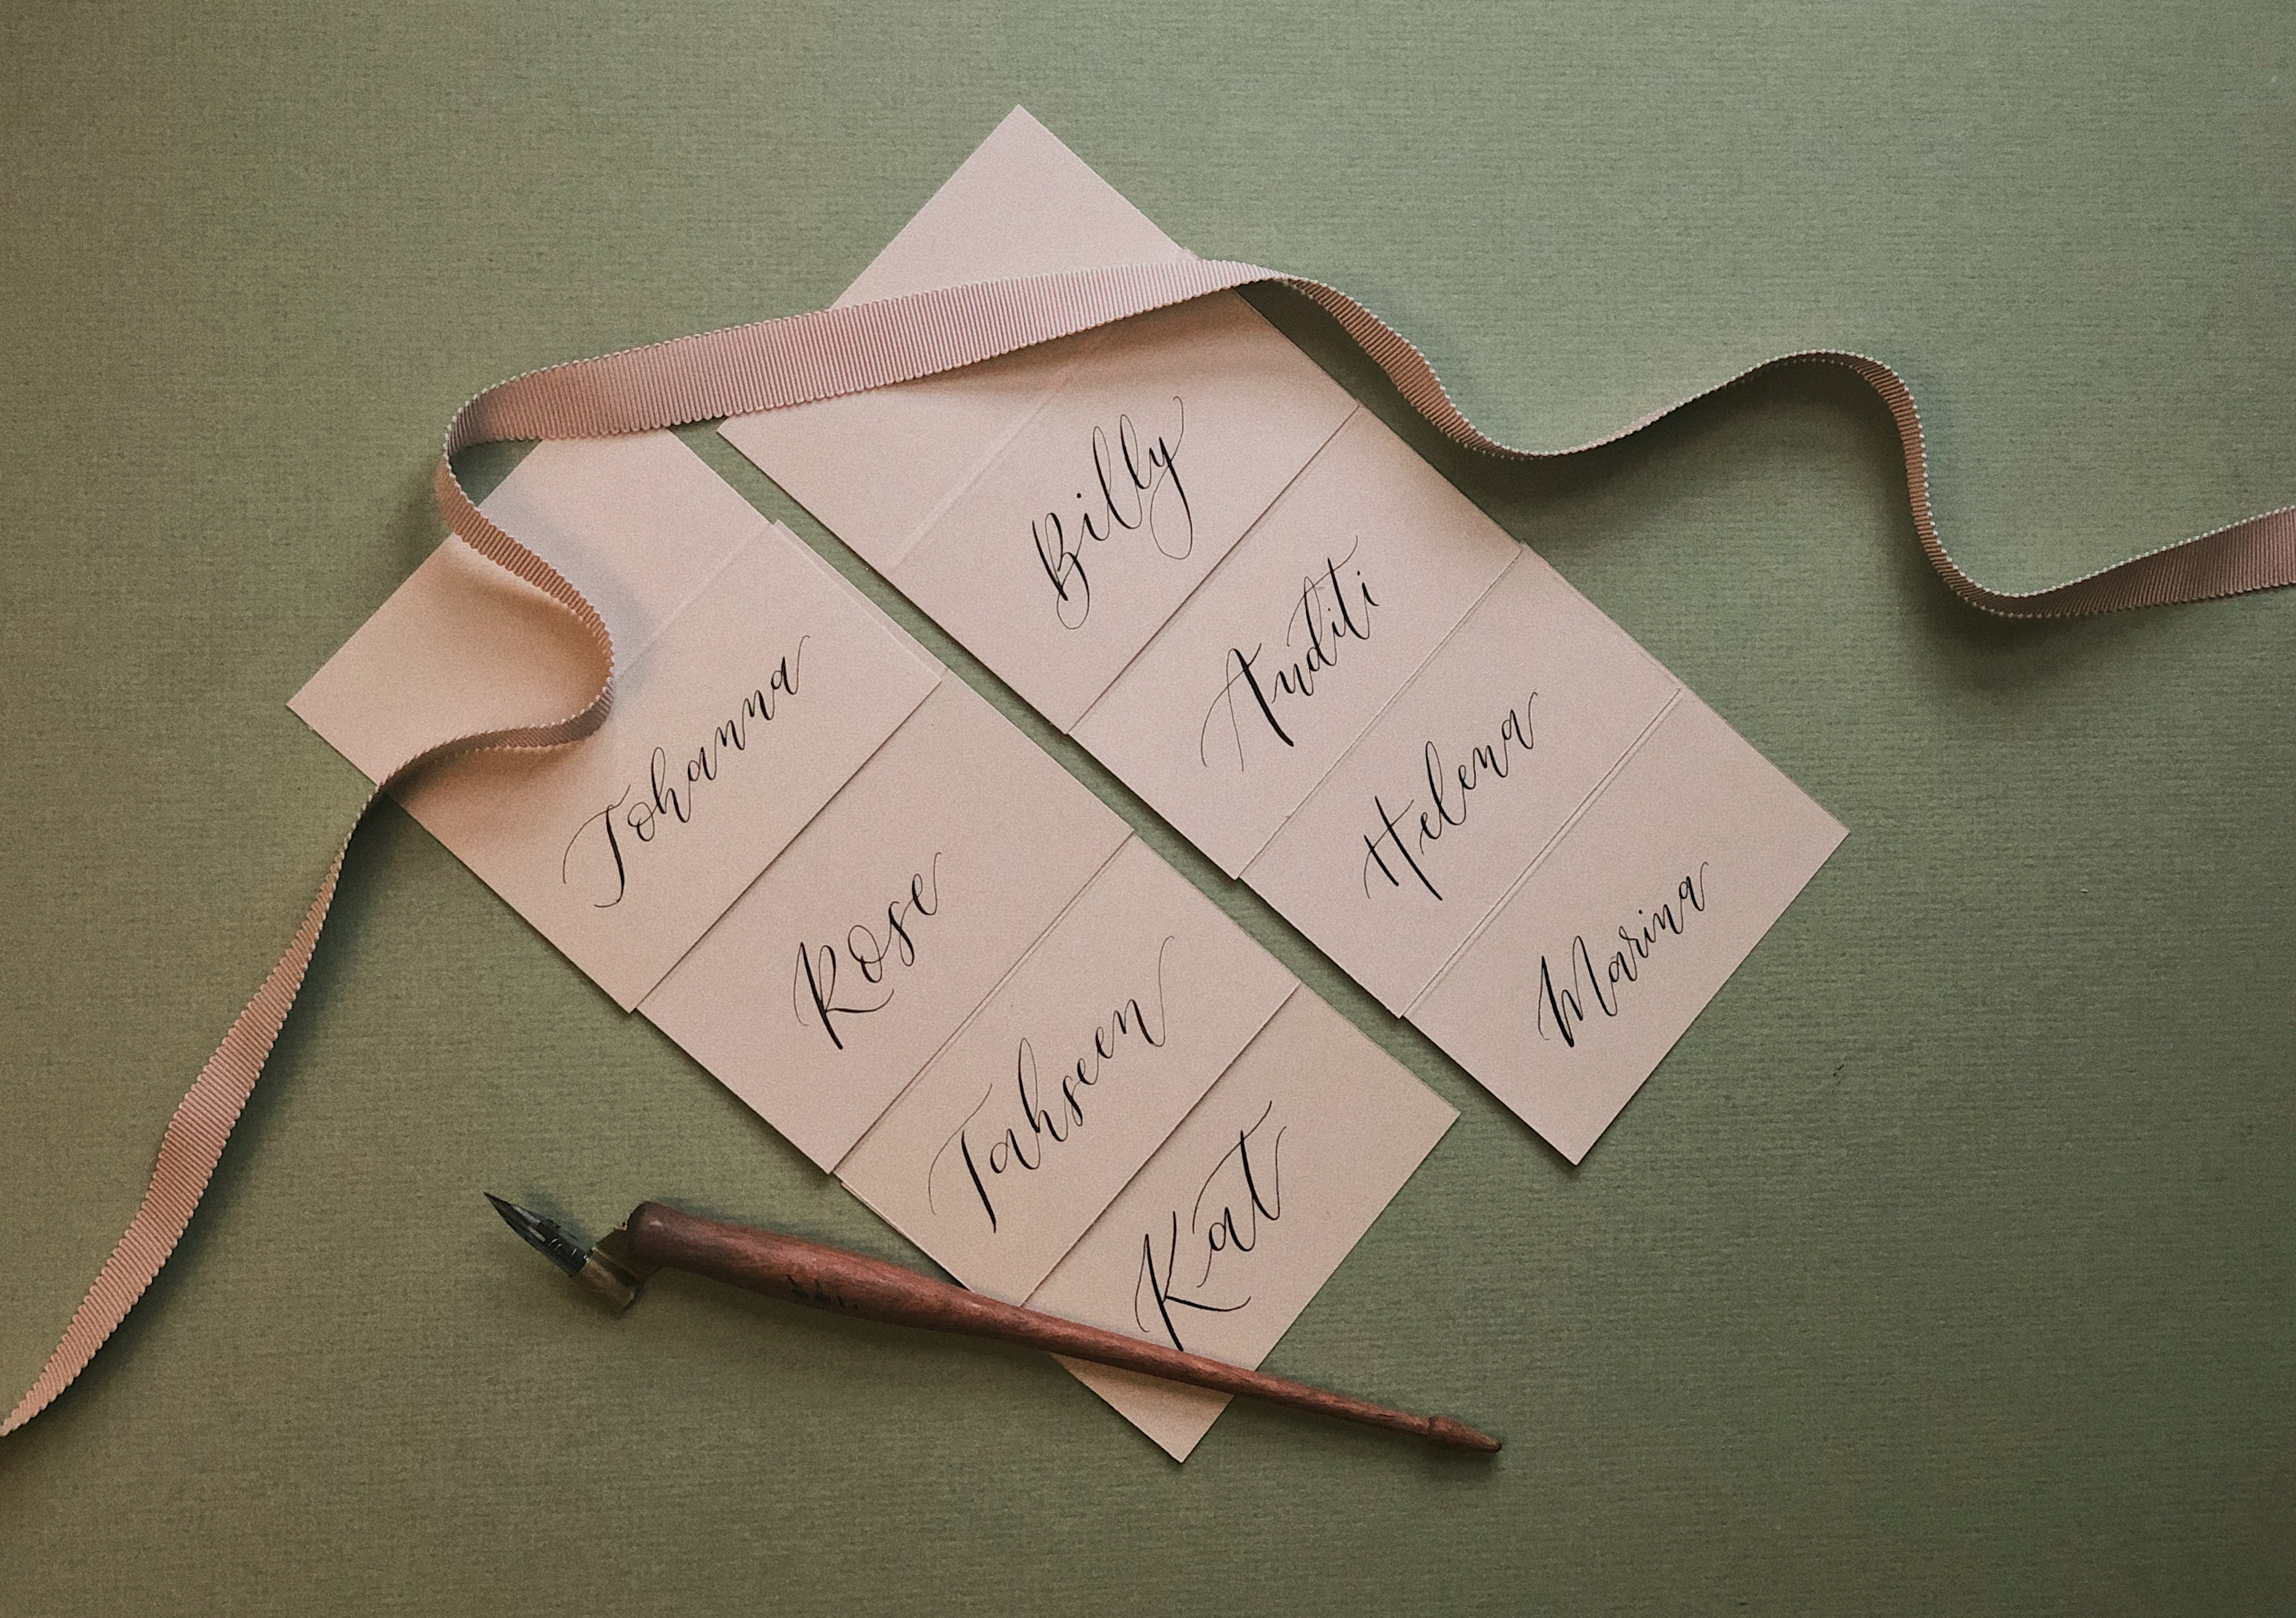 Johanna
Rose
Tahseen
Kat
Billy
Auditi
Helena
Marina